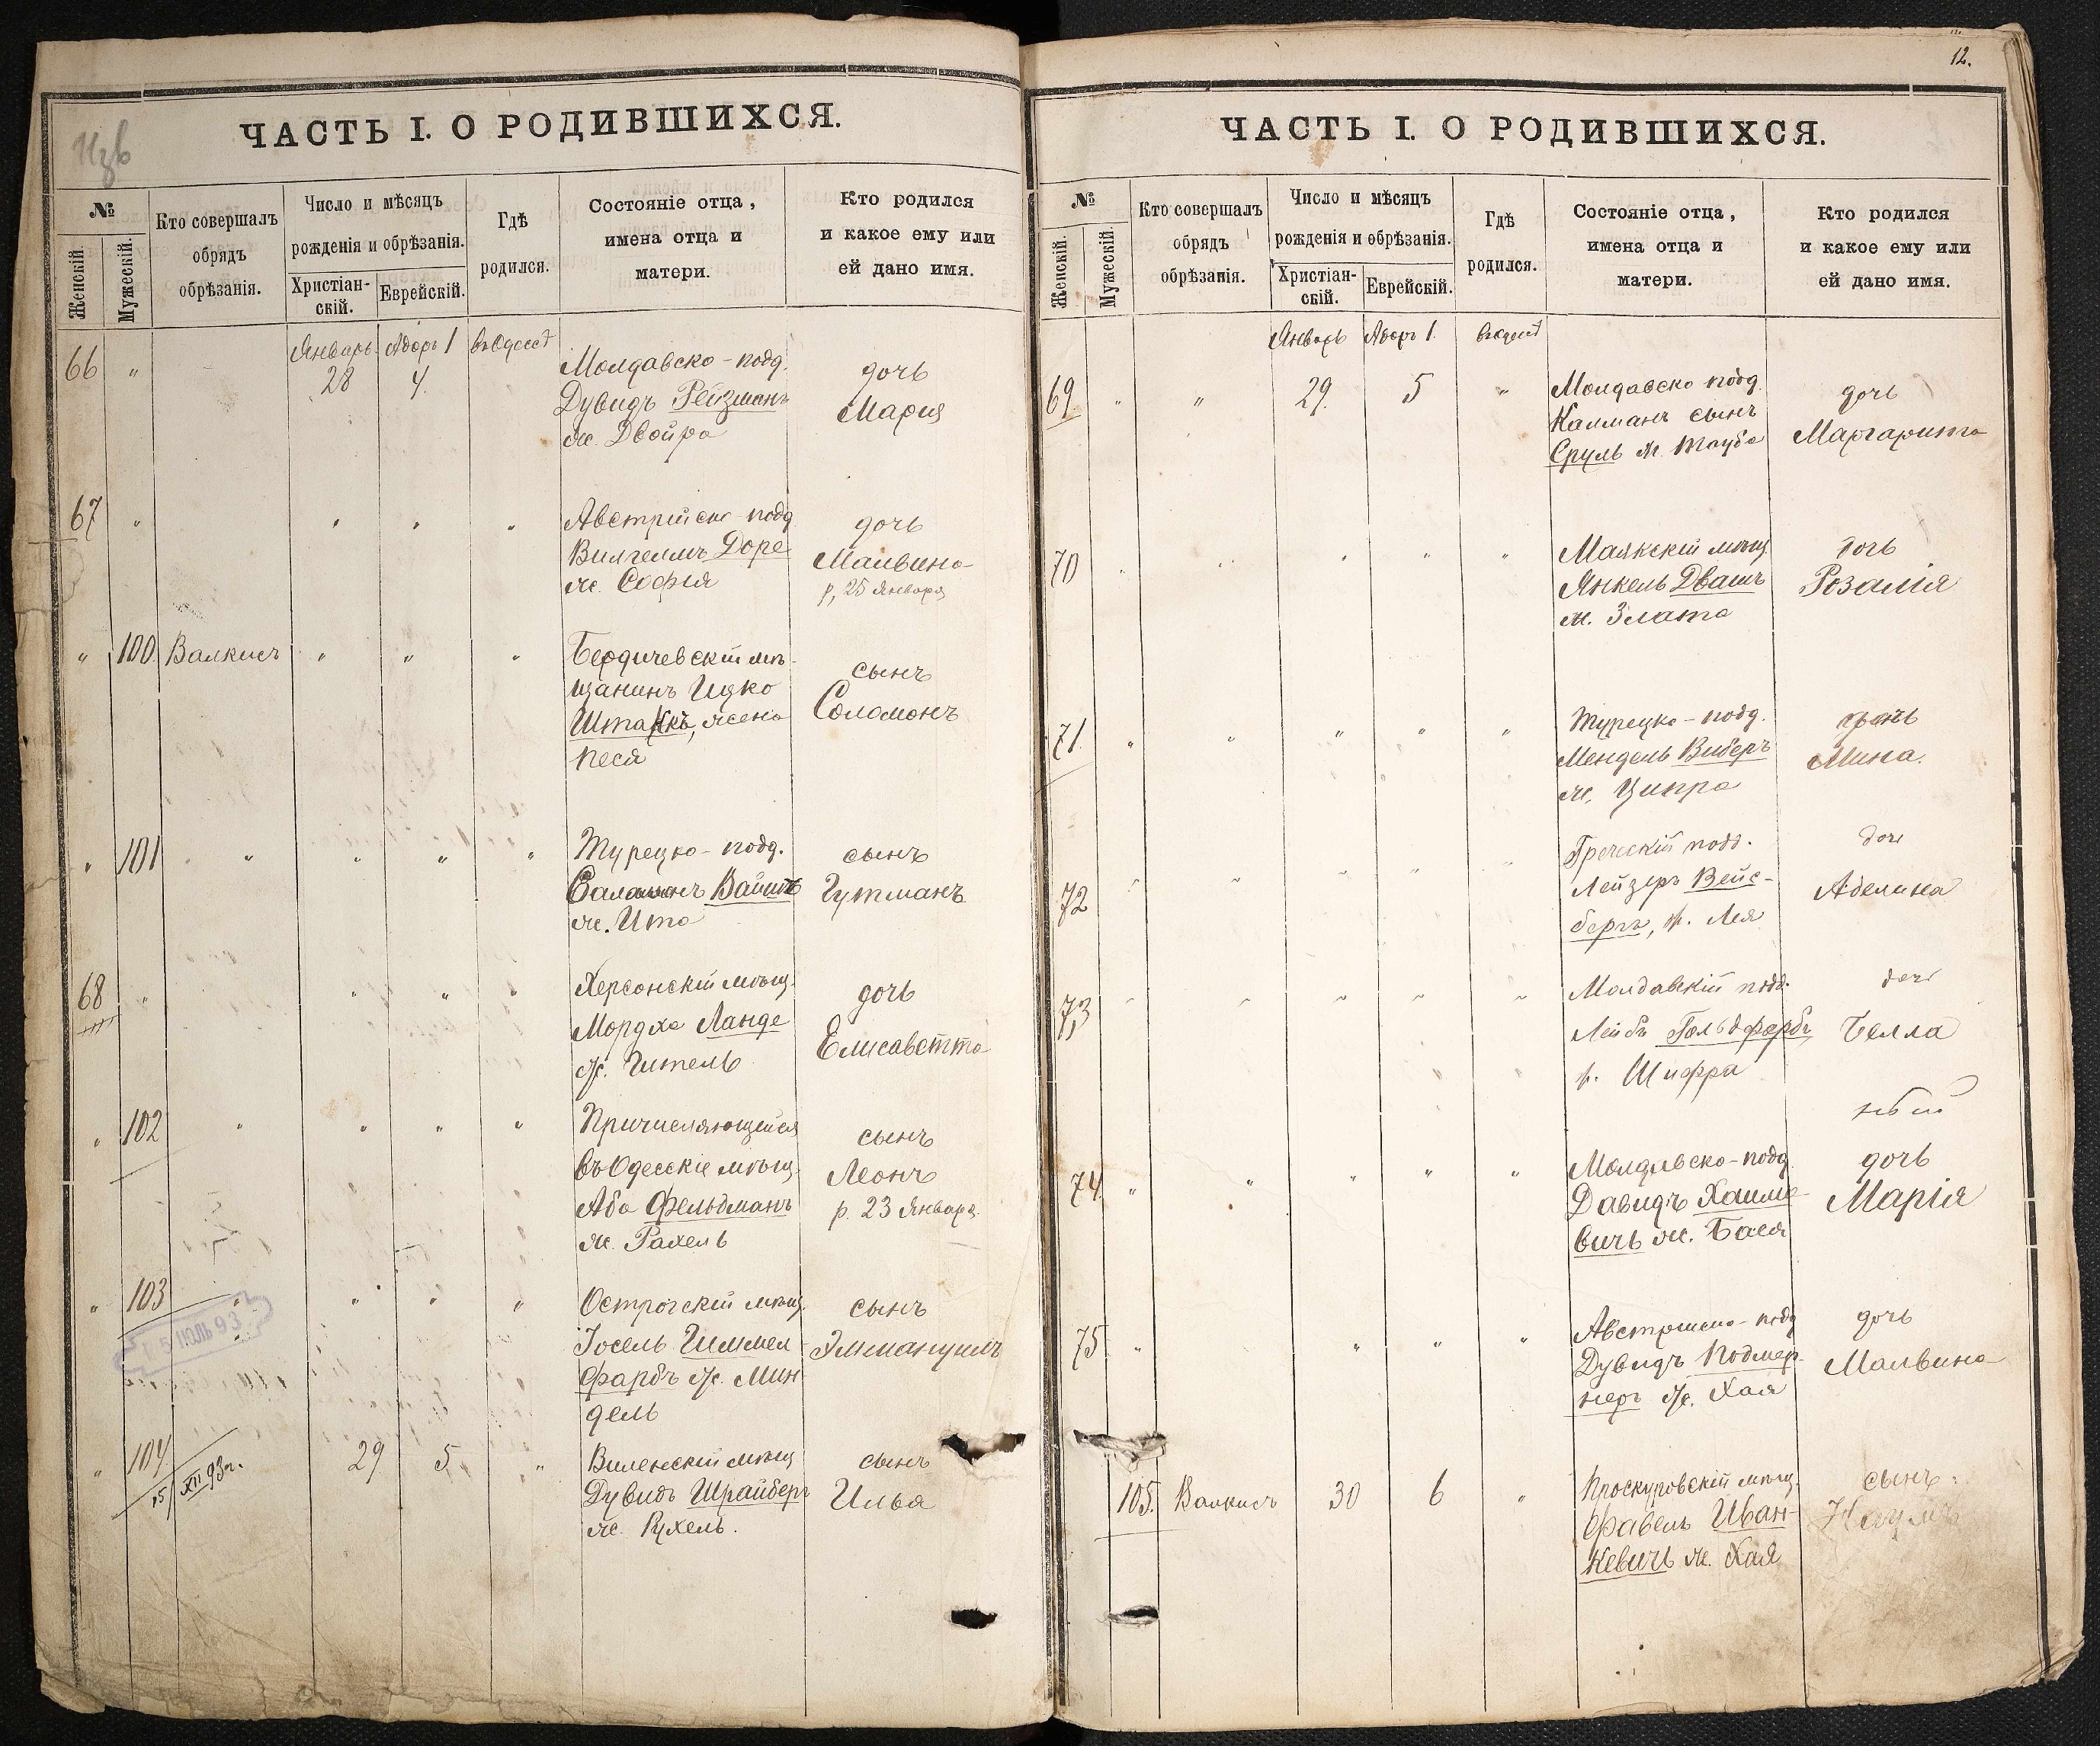 ЧАСТЬ I. О РОДИВШИХСЯ.
№
Женскій.
Мужескій.
Кто совершалъ
обрядъ
обрѣзанія.
Число и мѣсяцъ
рожденія и обрѣзанія.
Христіан-
скій.
Еврейскій.
Гдѣ
родился.
Состояніе отца,
имена отца и
матери.
Кто родился
и какое ему или
ей дано имя.
Январь Адаръ 1 въ Одессѣ
66 " 28 4. Молдавско-подд.
Дувидъ Рейзманъ
ж. Двойра
дочь
Мария
67 " " " " Австрійско-подд
Вилгелмъ Доре
ж. Софія
дочь
Малвина
р. 25 Января
" 100. Валкисъ " " " Бердичевскій мѣ-
щанинъ Ицко
жена
Песя
сынъ
Соломонъ
" 101 " " " " Турецко-подд.
ж. Ита
сынъ
Гутманъ
68 " " " " Херсонскій мѣщ.
Мордха Ланде
ж. Гитель
дочь
Елисаветта
" 102 " " " " Причисляющейся
въ Одесскіе мѣщ.
Аба Фельдманъ
ж. Рахель
сынъ
Леонъ
р. 23 Января
" 103 " " " " Острогскій мѣщ.
Іосель Гиммел
фарбъ ж. Мин
дель
сынъ
Эммануилъ
5 ИЮЛЬ 93
" 104 29 5 " Виленскій мѣщ
Дувидъ Шрайберъ
ж. Рухель.
сынъ
Илья
15/XII 93 г.
12.
ЧАСТЬ I. О РОДИВШИХСЯ.
№
Женскій.
Мужескій.
Кто совершалъ
обрядъ
обрѣзанія.
Число и мѣсяцъ
рожденія и обрѣзанія.
Христіан-
скій.
Еврейскій.
Гдѣ
родился.
Состояніе отца,
имена отца и
матери.
Кто родился
и какое ему или
ей дано имя.
Январь Адаръ 1. въ Одессѣ
69 " " 29. 5 " Молдавско подд.
Калманъ сынъ
Сруль ж. Тауба
дочь
Маргарита
70 " " " " " Маякскій мѣщ.
Янкель Двашъ
ж. Злата
дочь
Розалія
71. " " " " " Турецко-подд.
Мендель Виберъ
ж. Ципра
дочь
Мина.
72 " " " " " Греческій подд.
Лейзеръ Вейс-
бергъ, ж. Лея
дочь
Аделина
73 " " " " " Молдавскій подд.
Лейбъ Гольдфарбъ
ж. Шифра
дочь
Белла
74 " " " " " Молдавско-подд
Давидъ Хаиме-
вичъ ж. Бася
дочь
Марія
75 " " " " Австрийско-подд
Дувидъ Подмер-
неръ ж. Хая
дочь
Малвина
105. Валкисъ 30 6 " Проскуровскій мѣщ.
Фавель Иван-
кевичъ ж. Хая
сынъ
Наумъ